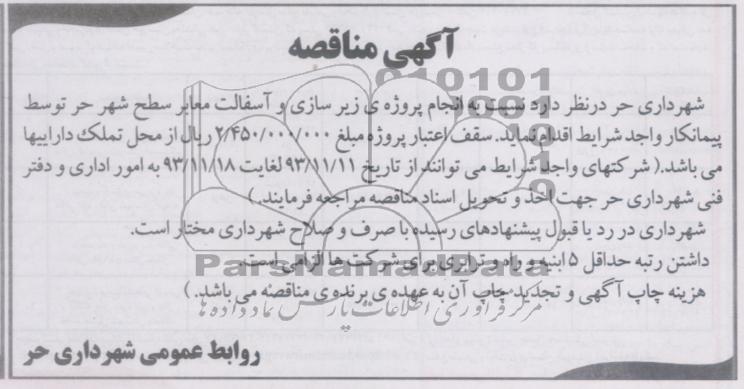 آگهی مناقصه
شهرداری حر درنظر دارد نسبت به انجام پروژه ی زیر سازی و آسفالت معابر سطح شهر حر توسط
پیمانکار واجد شرایط اقدام نماید. سقف اعتبار پروژه مبلغ ۲/۴۵۰/۰۰۰/۰۰۰ ریال از محل تملک داراییها
می باشد.( شرکتهای واجد شرایط می توانند از تاریخ ۹۳/۱۱/۱۱ لغایت ۹۳/۱۱/۱۸ به امور اداری و دفتر
فنی شهرداری حر جهت اخذ و تحویل اسناد مناقصه مراجعه فرمایند. )
شهرداری در رد یا قبول پیشنهادهای رسیده با صرف و صلاح شهرداری مختار است.
داشتن رتبه حداقل ۵ ابنیه و راه و ترابری برای شرکت ها الزامی است.
ParsNamadData
هزینه چاپ آگهی و تجدید چاپ آن به عهده ی برنده ی مناقصه می باشد. )
مرکز فرآوری اطلاعات پارس نماد داده ها
روابط عمومی شهرداری حر